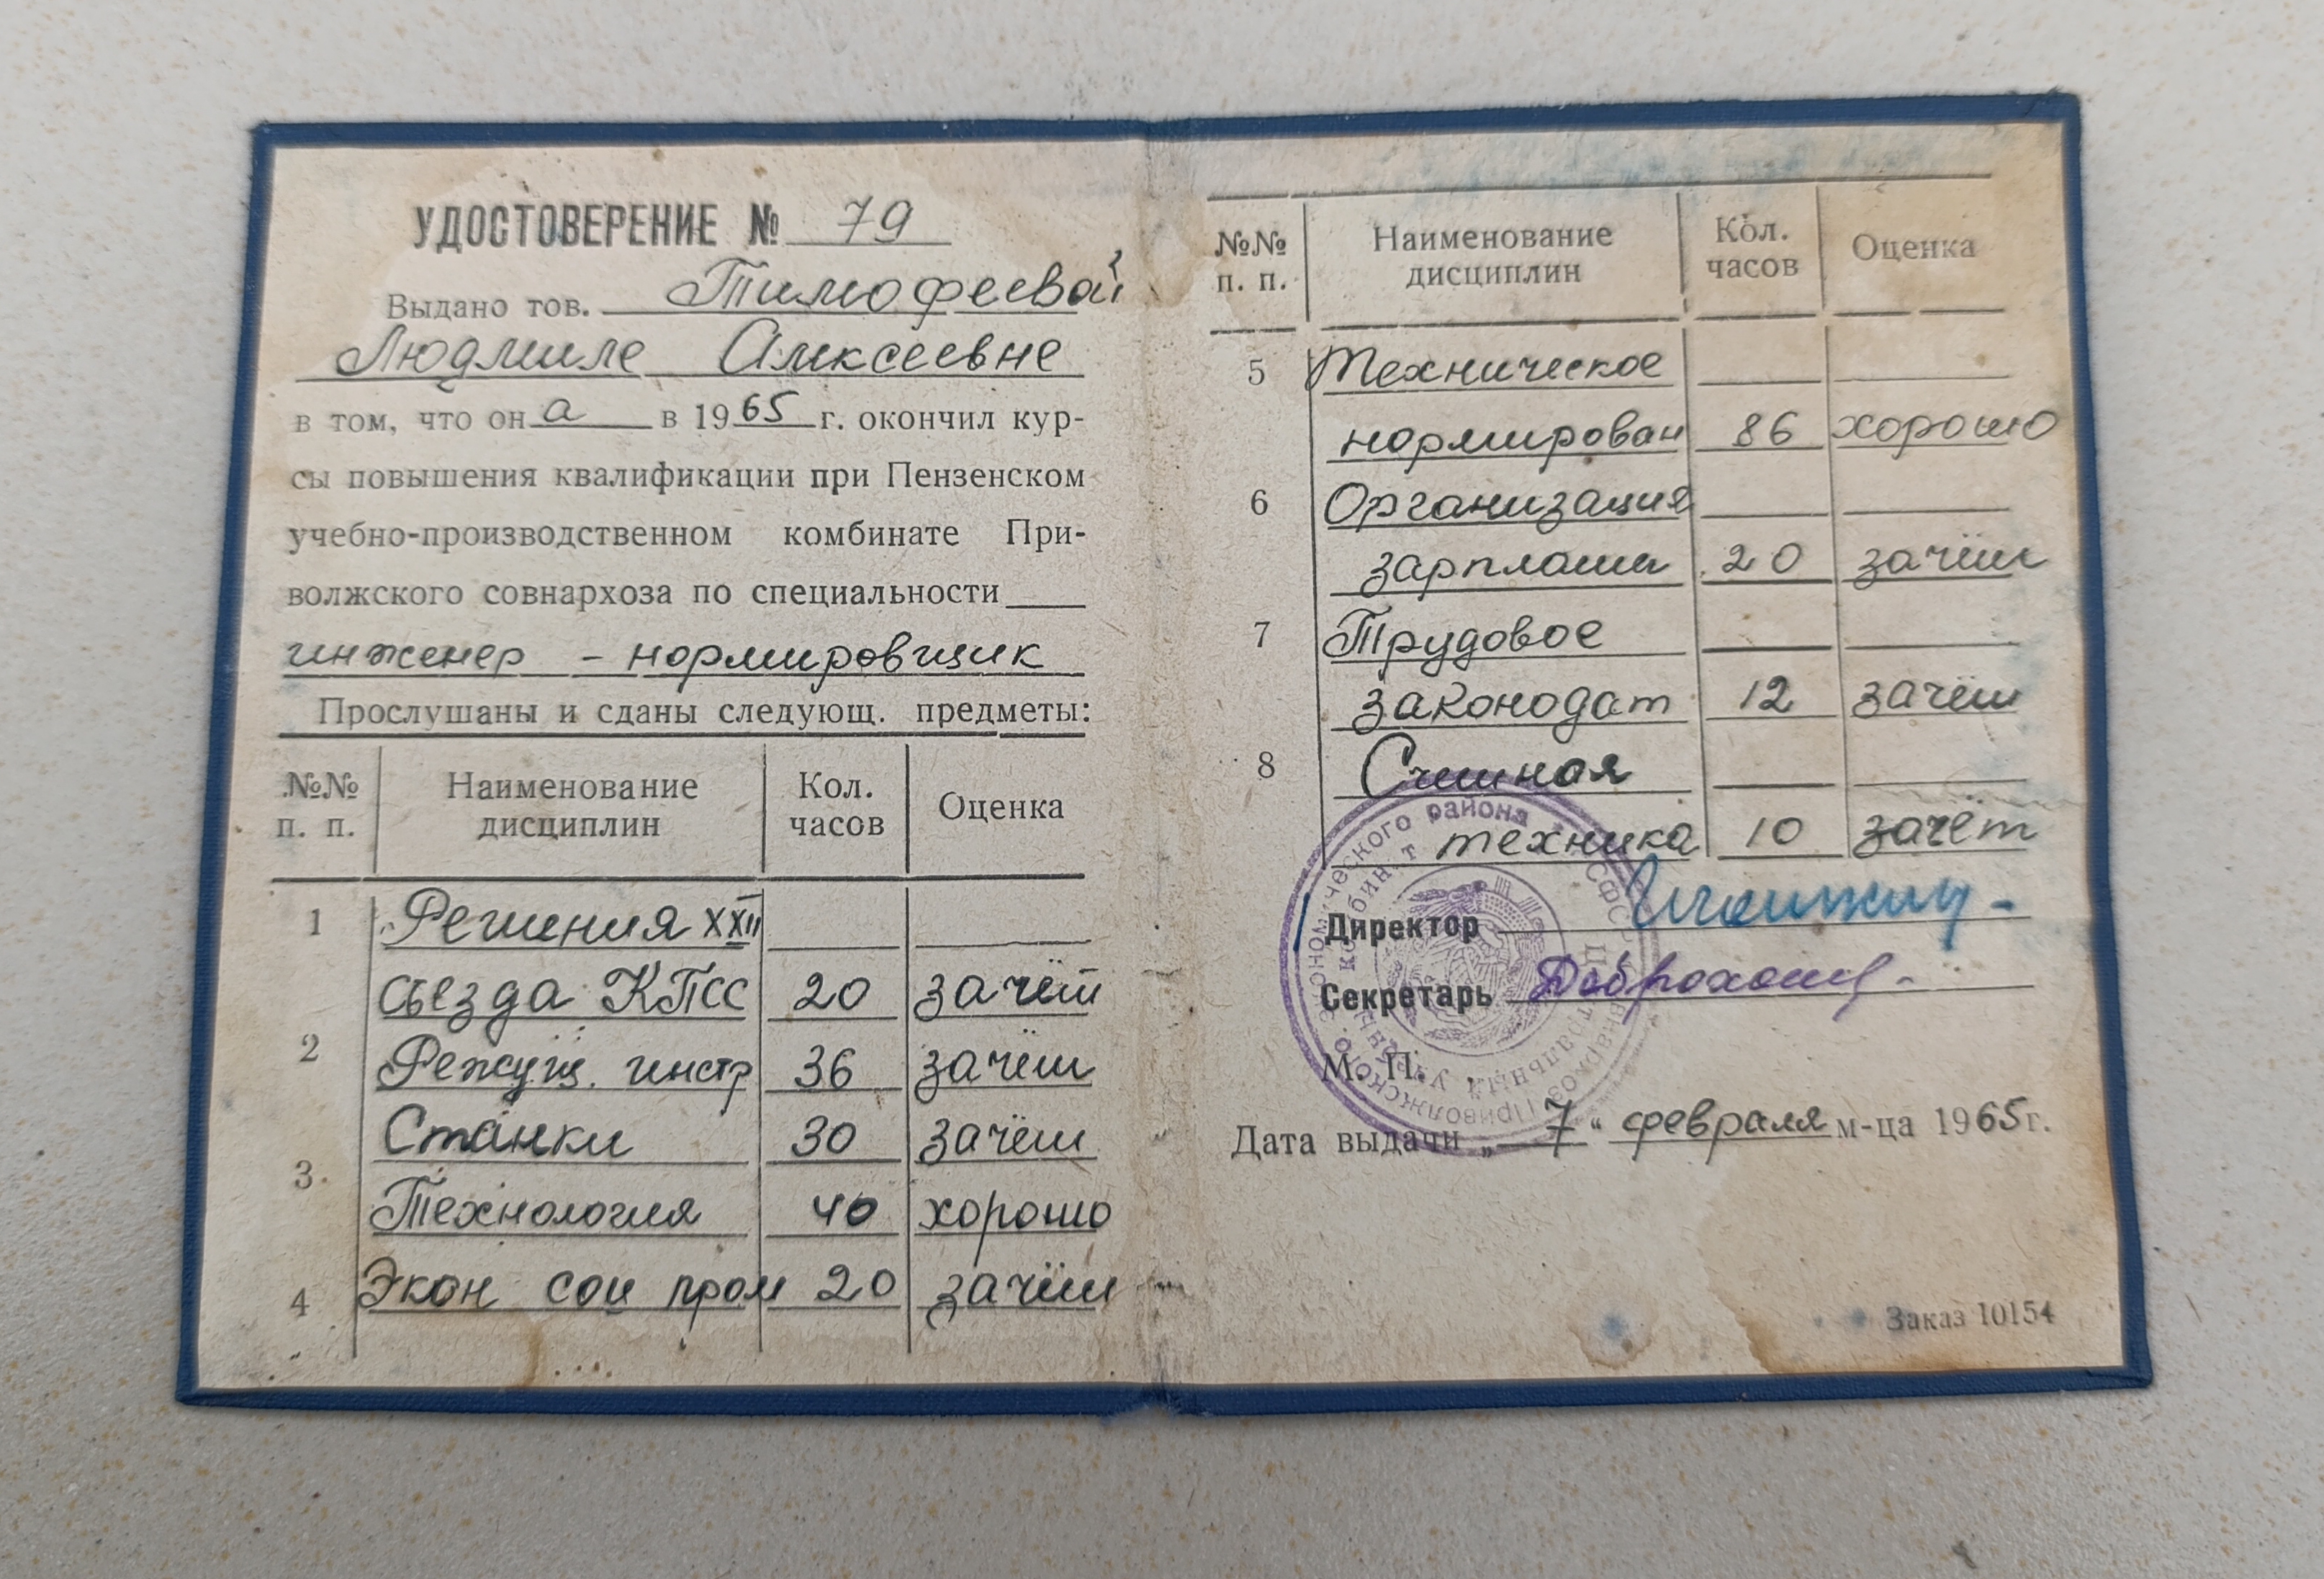 УДОСТОВЕРЕНИЕ № 79
Выдано тов. Тимофеевой
Людмиле Алексеевне
в том, что он а в 1965 г. окончил кур-
сы повышения квалификации при Пензенском
учебно-производственном комбинате При-
волжского совнархоза по специальности
инженер - нормировщик
Прослушаны и сданы следующ. предметы:
№№ п. п. Наименование дисциплин Кол. часов Оценка
1 Решения XXII
съезда КПСС 20 зачёт
2 Режущ. инстр 36 зачёт
Станки 30 зачёт
3. Технология 40 хорошо
4 Экон соц пром 20 зачёт
№№ п. п. Наименование дисциплин Кол. часов Оценка
5 Техническое
нормирован 86 хорошо
6 Организация
зарплаты 20 зачёт
7 Трудовое
законодат 12 зачёт
8 Счётная
техника 10 зачёт
Директор
Секретарь
М. П.
Дата выдачи „7“ февраля м-ца 1965 г.
Заказ 10154